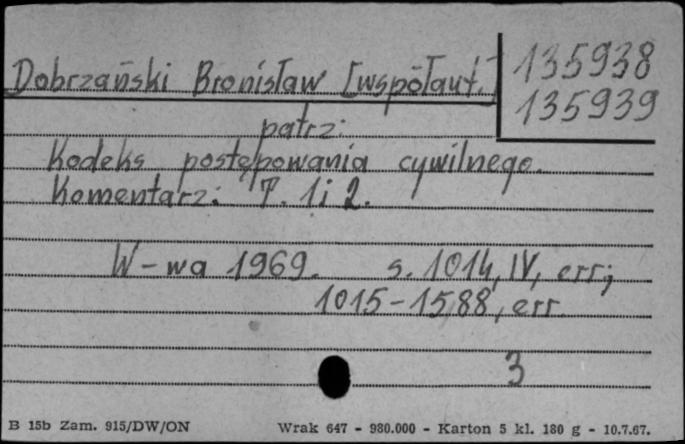 Dobrzański Bronisław [współaut.]
135938
135939
patrz:
Kodeks postępowania cywilnego.
Komentarz. T. 1 i 2.
W-wa 1969. s. 1014, IV, err.;
1015-1588, err.
3
B 15b Zam. 915/DW/ON Wrak 647 - 980.000 - Karton 5 kl. 180 g - 10.7.67.